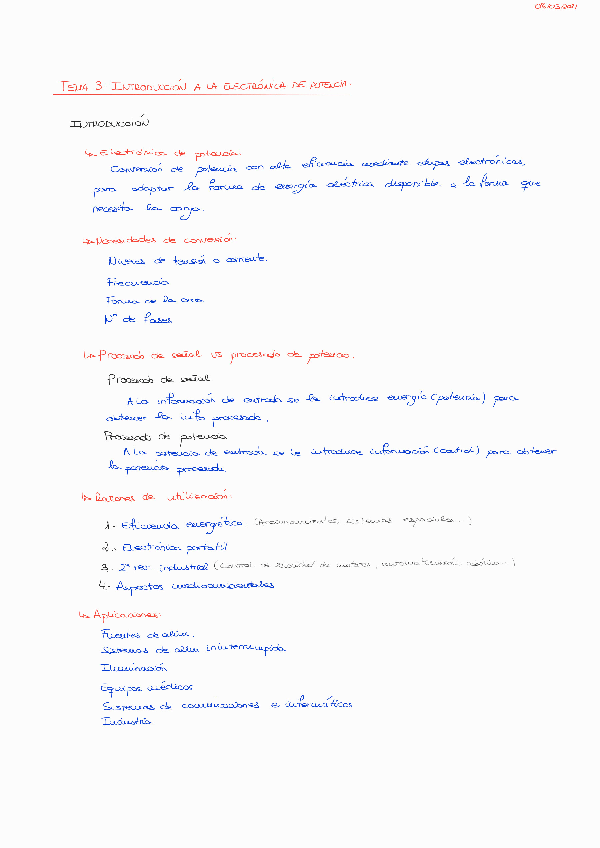 04/03/2021
TEMA 3 INTRODUCCIÓN A LA ELECTRÓNICA DE POTENCIA.
INTRODUCCIÓN
↳ Electrónica de potencia:
Conversión de potencia con alta eficiencia mediante disps electrónicos,
para adaptar la forma de energía eléctrica disponible a la forma que
necesita la carga.
↳ Necesidades de conversión:
Niveles de tensión o corriente.
Frecuencia
Forma de la onda
Nº de fases
↳ Procesado de señal vs procesado de potencia.
Procesado de señal
A la información de entrada se le introduce energía (potencia) para
obtener la info procesada.
Procesado de potencia
A la potencia de entrada se le introduce información (control) para obtener
la potencia procesada.
↳ Razones de utilización:
1.- Eficiencia energética
2.- Electrónica portátil
3. 2ª rev. industrial (Control de
4.- Aspectos medioambientales
↳ Aplicaciones:
Fuentes de alim.
Sistemas de alim ininterrumpida
Iluminación
Equipos médicos
Sistemas de comunicaciones e informáticos
Industria